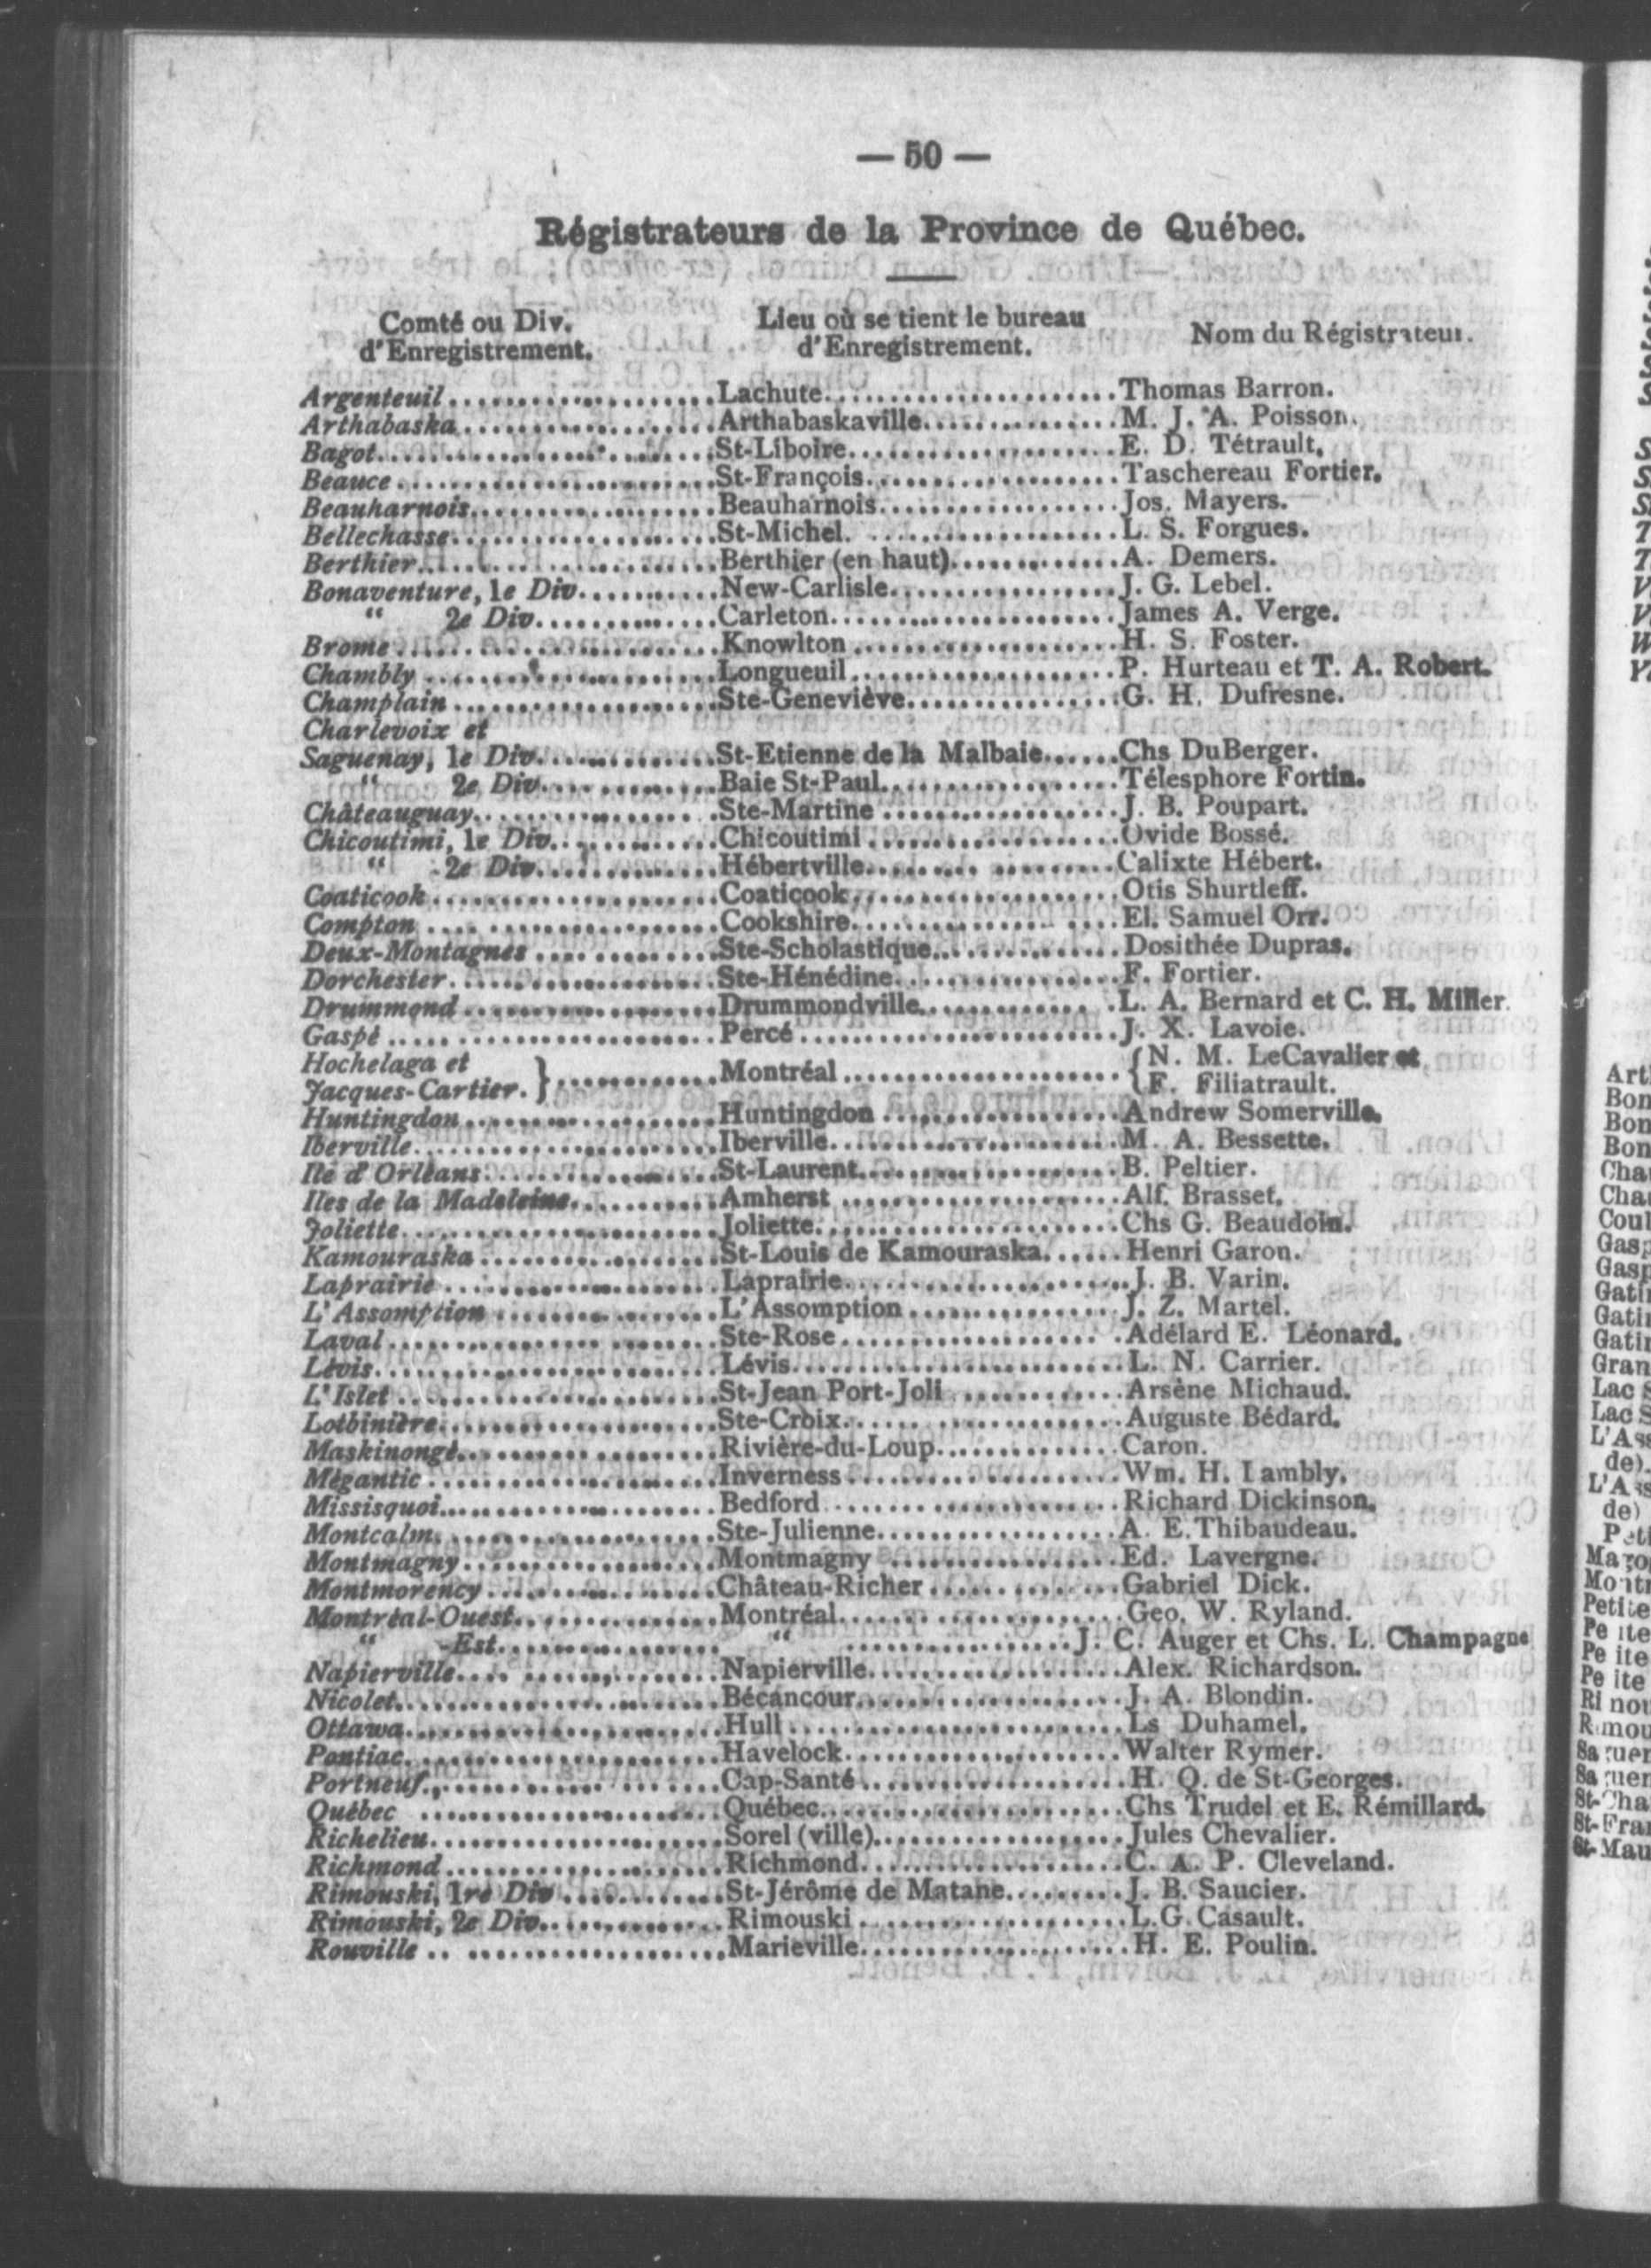 — 50 —
Régistrateurs de la Province de Québec.
Comté ou Div. d'Enregistrement. Lieu où se tient le bureau d'Enregistrement. Nom du Régistrateur.
Argenteuil....................Lachute......................Thomas Barron.
Arthabaska...................Arthabaskaville...............M. J. A. Poisson.
Bagot.........................St-Liboire....................E. D. Tétrault.
Beauce........................St-François...................Taschereau Fortier.
Beauharnois...................Beauharnois..................Jos. Mayers.
Bellechasse...................St-Michel. ...................L. S. Forgues.
Berthier......................Berthier (en haut)............A. Demers.
Bonaventure, 1e Div...........New-Carlisle.................J. G. Lebel.
“ 2e Div..............Carleton.....................James A. Verge.
Brome.........................Knowlton....................H. S. Foster.
Chambly......................Longueuil....................P. Hurteau et T. A. Robert.
Champlain....................Ste-Geneviève................G. H. Dufresne.
Charlevoix et
Saguenay, 1e Div..............St-Etienne de la Malbaie......Chs DuBerger.
“ 2e Div..............Baie St-Paul..................Télesphore Fortin.
Châteauguay...................Ste-Martine..................J. B. Poupart.
Chicoutimi, 1e Div............Chicoutimi...................Ovide Bossé.
“ 2e Div..............Hébertville...................Calixte Hébert.
Coaticook.....................Coaticook....................Otis Shurtleff.
Compton......................Cookshire....................El. Samuel Orr.
Deux-Montagnes..............Ste-Scholastique..............Dosithée Dupras.
Dorchester....................Ste-Hénédine.................F. Fortier.
Drummond...................Drummondville...............L. A. Bernard et C. H. Miller.
Gaspé........................Percé........................J. X. Lavoie.
Hochelaga et } Montréal { N. M. LeCavalier et
Jacques-Cartier. } { F. Filiatrault.
Huntingdon...................Huntingdon..................Andrew Somerville.
Iberville......................Iberville......................M. A. Bessette.
Ile d'Orléans..................St-Laurent....................B. Peltier.
Iles de la Madeleine...........Amherst.....................Alf. Brasset.
Joliette.......................Joliette.......................Chs G. Beaudoin.
Kamouraska..................St-Louis de Kamouraska......Henri Garon.
Laprairie.....................Laprairie.....................J. B. Varin.
L'Assomption.................L'Assomption................J. Z. Martel.
Laval.........................Ste-Rose.....................Adélard E. Léonard.
Lévis.........................Lévis........................L. N. Carrier.
L'Islet........................St-Jean Port-Joli.............Arsène Michaud.
Lotbinière....................Ste-Croix.....................Auguste Bédard.
Maskinongé...................Rivière-du-Loup..............Caron.
Mégantic.....................Inverness....................Wm. H. Lambly.
Missisquoi....................Bedford......................Richard Dickinson.
Montcalm.....................Ste-Julienne..................A. E. Thibaudeau.
Montmagny..................Montmagny..................Ed. Lavergne.
Montmorency.................Château-Richer..............Gabriel Dick.
Montréal-Ouest...............Montréal.....................Geo. W. Ryland.
“ -Est................. “ ..................J. C. Auger et Chs. L. Champagne
Napierville...................Napierville...................Alex. Richardson.
Nicolet.......................Bécancour....................J. A. Blondin.
Ottawa.......................Hull.........................Ls Duhamel.
Pontiac.......................Havelock.....................Walter Rymer.
Portneuf......................Cap-Santé....................H. Q. de St-Georges.
Québec.......................Québec.......................Chs Trudel et E. Rémillard.
Richelieu.....................Sorel (ville)...................Jules Chevalier.
Richmond....................Richmond....................C. A. P. Cleveland.
Rimouski, 1re Div............St-Jérôme de Matane.........J. B. Saucier.
Rimouski, 2e Div..............Rimouski....................L. G. Casault.
Rouville......................Marieville....................H. E. Poulin.